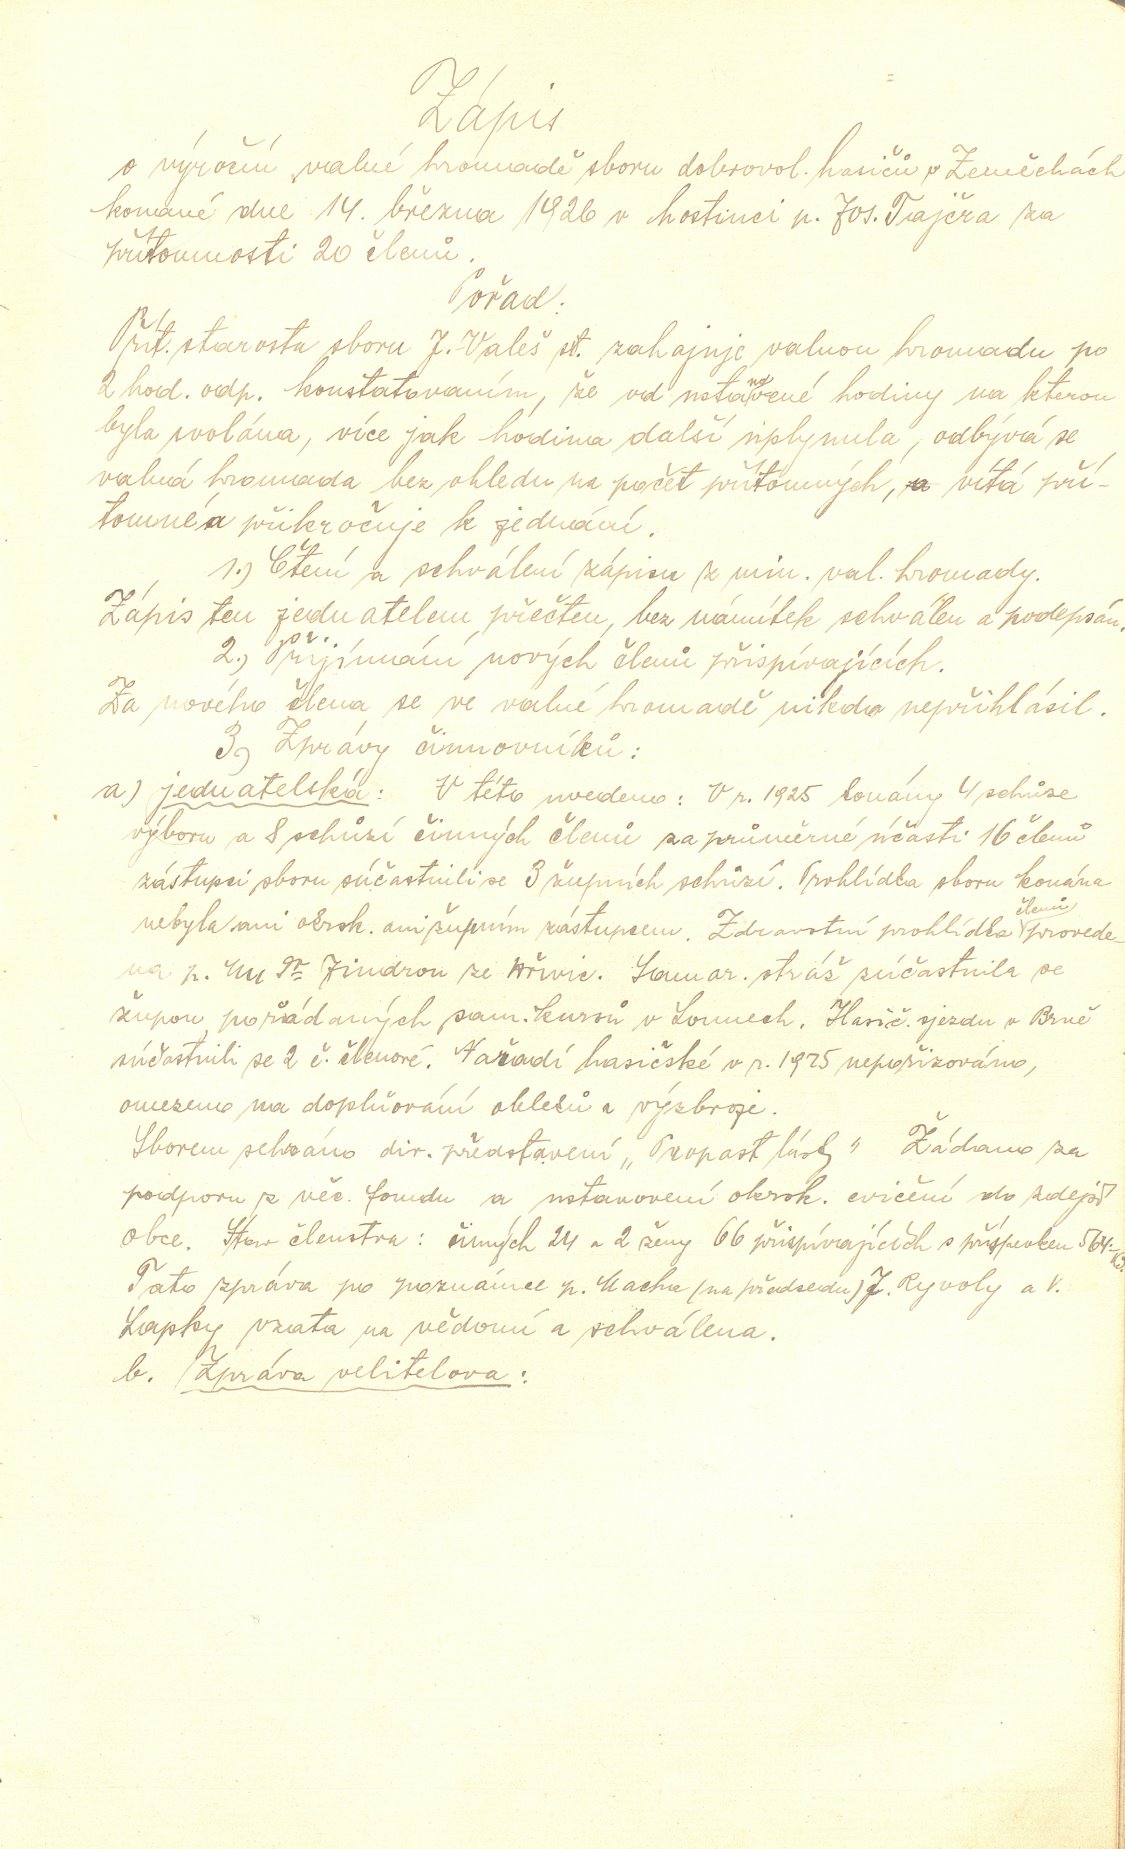 Zápis
o výroční valné hromadě sboru dobrovol. hasičů v Zeměchách
konané dne 14. března 1926 v hostinci p. Jos. Trajčra za
přítomnosti 20 členů.
Pořad:
Přít. starosta sboru J. Valeš st. zahajuje valnou hromadu po
2 hod. odp. konstatovaním, že od ustanovené hodiny na kterou
byla svolána, více jak hodina další uplynula, odbývá se
valná hromada bez ohledu na počet přítomných, a vítá pří-
tomné a přikročuje k jednání.
1.) Čtení a schválení zápisu z min. val. hromady.
Zápis ten jednatelem přečten, bez námitek schválen a podepsán.
2.) Přijímání nových členů přispívajících.
Za nového člena se ve valné hromadě nikdo nepřihlásil.
3) Zprávy činnovníků:
a) jednatelská: V této uvedeno: V r. 1925 konány 4 schůze
výboru a 8 schůzí činných členů za průměrné účasti 16 členů
zástupci sboru súčastnili se 3 župních schůzí. Prohlídka sboru konána
nebyla ani okrsk. ani župním zástupcem. Zdravotní prohlídka členů provede-
na p. Jindrou ze Hřivic. Samar. stráž súčastnila se
župou pořádaných sam. kursů v Lounech. Hasič. sjezdu v Brně
súčastnili se 2 č. členové. Nařadí hasičské v r. 1925 nepořizováno,
omezeno na doplňování obleků a výzbroje.
Sborem sehráno div. představení „Propast lásky" Žádano za
podporu z věc. fondu a ustanovení okrsk. cvičení do zdejší
obce. Stav členstva: činných 24 a 2 ženy 66 přispívajících s příspěvkem 564.- Kč.
Tato zpráva po poznámce p. Macha (na předsedu) J. Ryvoly a V.
Lapky vzata na vědomí a schválena.
b. Zpráva velitelova: